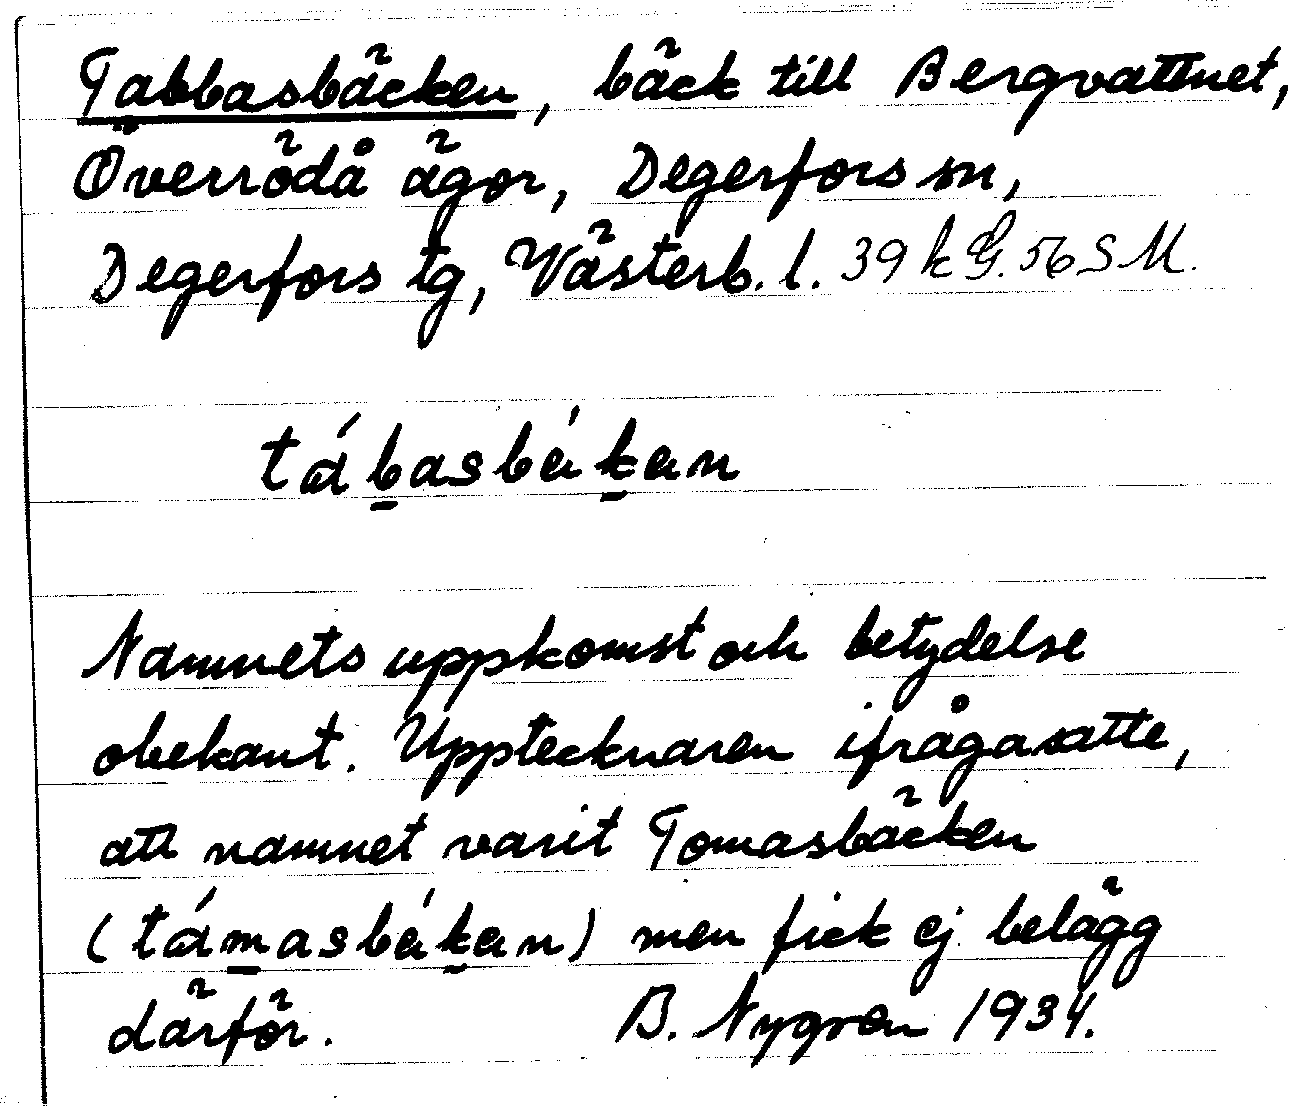 Tabbasbäcken, bäck till Bergvattnet,
Överrödå ägor, Degerfors sn,
Degerfors tg, Västerb. l. 39 k G. 56 S M.
tábasbékan
Namnets uppkomst och betydelse
obekant. Upptecknaren ifrågasatte,
att namnet varit Tomasbäcken
(támasbékan) men fick ej belägg
därför. B. Nygren 1934.